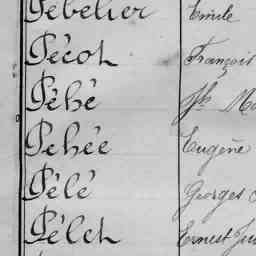 Pébelier Emile
Pécot François
Péhé Jh Ma
Pehée Eugène
Pélé Georges
Pélet Ernest Ju